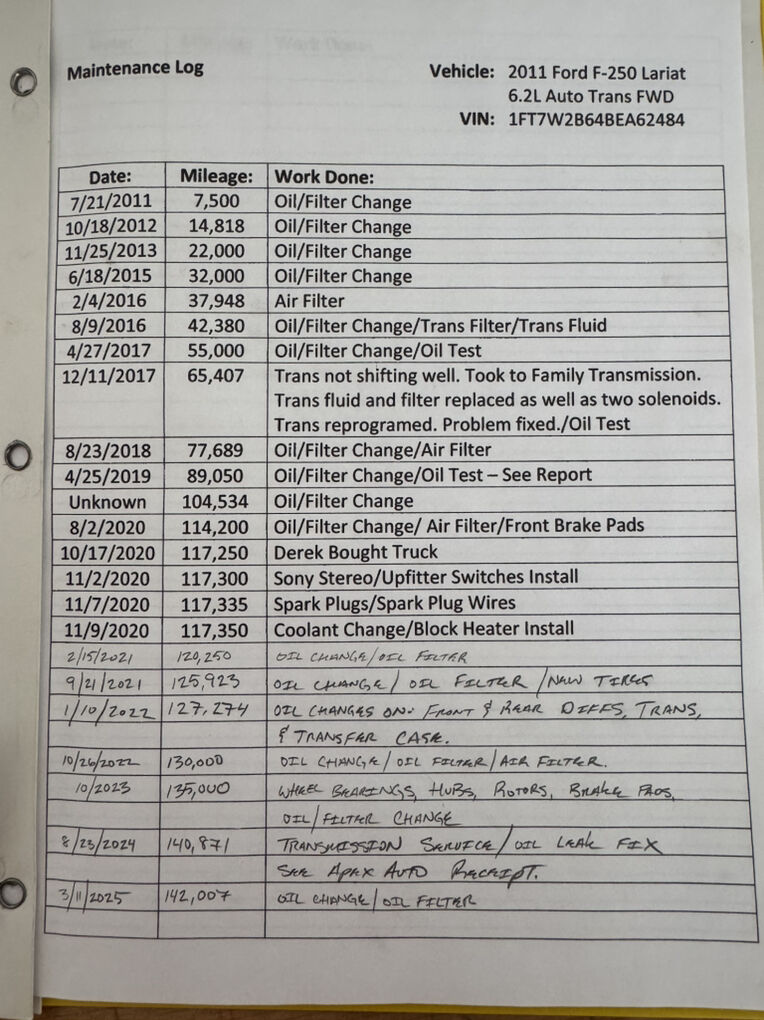 Maintenance Log
Vehicle: 2011 Ford F-250 Lariat
6.2L Auto Trans FWD
VIN: 1FT7W2B64BEA62484
Date: Mileage: Work Done:
7/21/2011 7,500 Oil/Filter Change
10/18/2012 14,818 Oil/Filter Change
11/25/2013 22,000 Oil/Filter Change
6/18/2015 32,000 Oil/Filter Change
2/4/2016 37,948 Air Filter
8/9/2016 42,380 Oil/Filter Change/Trans Filter/Trans Fluid
4/27/2017 55,000 Oil/Filter Change/Oil Test
12/11/2017 65,407 Trans not shifting well. Took to Family Transmission.
Trans fluid and filter replaced as well as two solenoids.
Trans reprogramed. Problem fixed./Oil Test
8/23/2018 77,689 Oil/Filter Change/Air Filter
4/25/2019 89,050 Oil/Filter Change/Oil Test – See Report
Unknown 104,534 Oil/Filter Change
8/2/2020 114,200 Oil/Filter Change/ Air Filter/Front Brake Pads
10/17/2020 117,250 Derek Bought Truck
11/2/2020 117,300 Sony Stereo/Upfitter Switches Install
11/7/2020 117,335 Spark Plugs/Spark Plug Wires
11/9/2020 117,350 Coolant Change/Block Heater Install
2/15/2021 120,250 OIL CHANGE/OIL FILTER
9/21/2021 125,923 OIL CHANGE/ OIL FILTER /NEW TIRES
1/10/2022 127,274 OIL CHANGES ON: FRONT & REAR DIFFS, TRANS,
& TRANSFER CASE.
10/26/2022 130,000 OIL CHANGE/OIL FILTER/AIR FILTER.
10/2023 135,000 WHEEL BEARINGS, HUBS, ROTORS, BRAKE PADS,
OIL/FILTER CHANGE
8/23/2024 140,871 TRANSMISSION SERVICE/OIL LEAK FIX
SEE APEX AUTO RECEIPT.
3/11/2025 142,007 OIL CHANGE/OIL FILTER